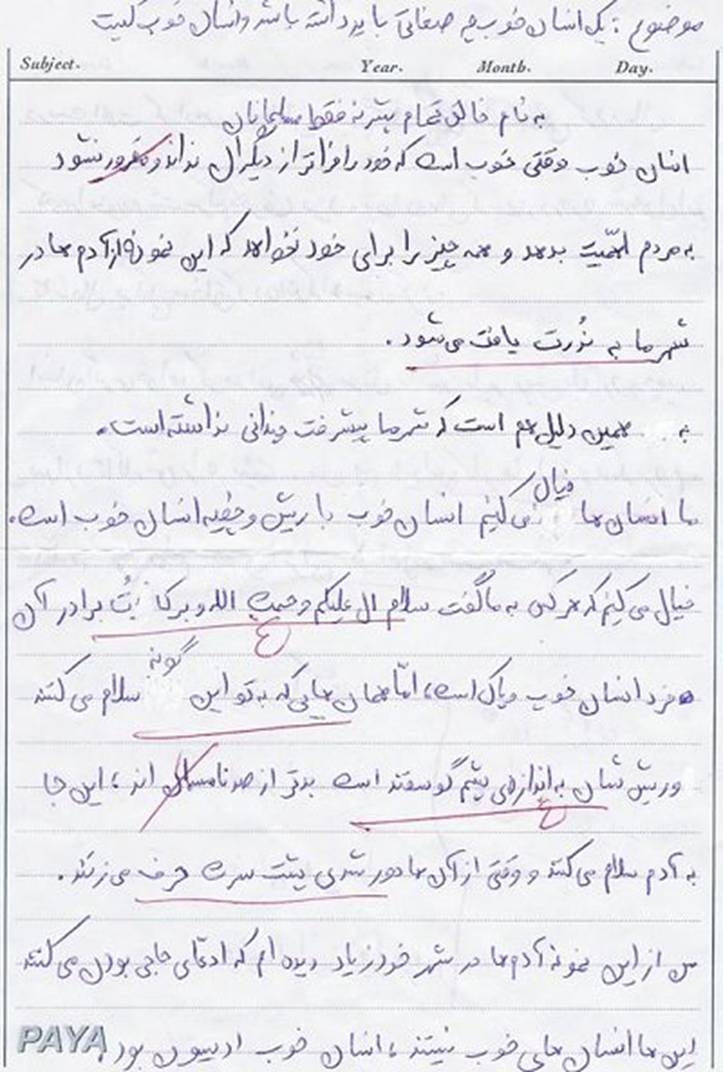 موضوع : یک انسان خوب چه صفاتی باید داشته باشد و انسان خوب کیست
Subject. Year. Month. Day.
به نام خالق تمام بشر نه فقط مسلمانان
انسان خوب وقتی خوب است که خود را فراتر از دیگران نداند و مغرور نشود
به مردم اهمّیت بدهد و همه چیز را برای خود نخواهد که این نمونه از آدم ها در
شهر ما به نُدرت یافت می شود .
به همین دلیل هم است که شهر ما پیشرفت چندانی نداشته است.
ما انسان ها خیال می کنیم انسان خوب با ریش و چفیه انسان خوب است.
خیال می کنیم که هر کس به ما گفت سلام ال علیکم و حمت الله و برکا تُ برادر آن
فرد انسان خوب و پاک است، امّا همان هایی که به تو این گونه سلام می کنند
و ریش شان به اندازه ی پشم گوسفند است بدتر از صد نامسلمان اند ، این جا
به آدم سلام می کنند و وقتی از آن ها دور شدی پشت سرت حرف می زنند .
من از این نمونه آدم ها در شهر خود زیاد دیده ام که ادعّای حاجی بودن می کنند
این ها انسان های خوب نیستند ، انسان خوب ادیسون بود
PAYA